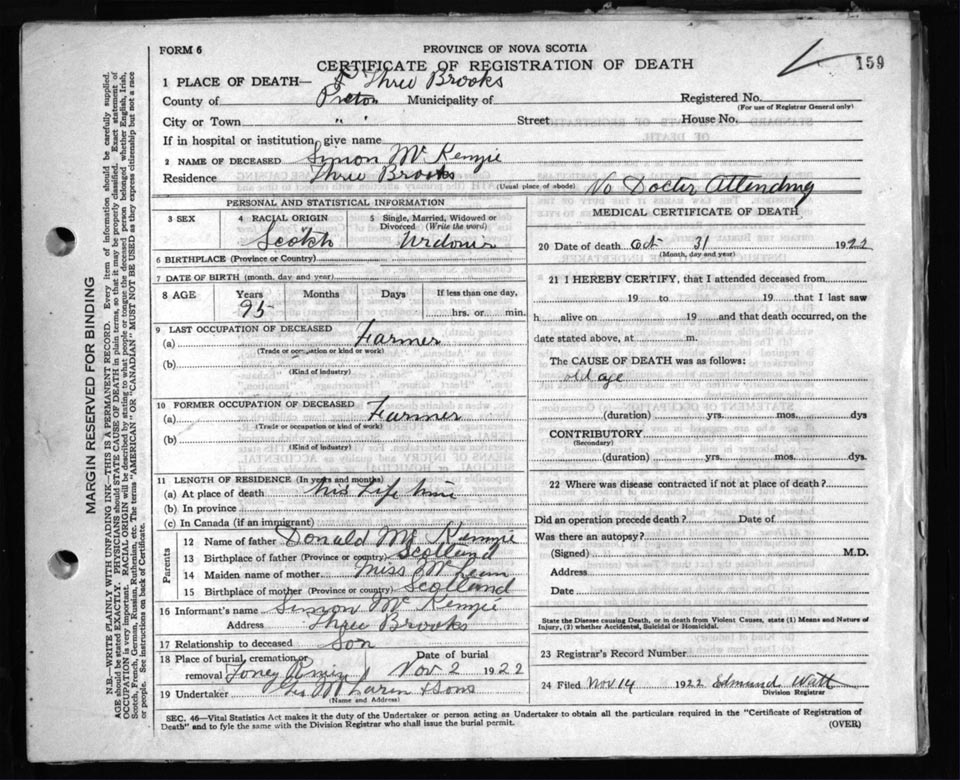 FORM 6
PROVINCE OF NOVA SCOTIA
CERTIFICATE OF REGISTRATION OF DEATH
159
1 PLACE OF DEATH— Three Brooks
County of Pictou Municipality of Registered No.
(For use of Registrar General only)
City or Town " " Street House No.
If in hospital or institution, give name
2 NAME OF DECEASED Simon McKenzie
Residence Three Brooks
(Usual place of abode) No Docter Attending
PERSONAL AND STATISTICAL INFORMATION
3 SEX
4 RACIAL ORIGIN
Scotch
5 Single, Married, Widowed or
Divorced (Write the word)
6 BIRTHPLACE (Province or Country)
7 DATE OF BIRTH (month, day and year)
8 AGE Years Months Days If less than one day,
95 hrs. or min.
9 LAST OCCUPATION OF DECEASED
(a) Farmer
(Trade or occupation or kind or work)
(b)
(Kind of industry)
10 FORMER OCCUPATION OF DECEASED
(a) Farmer
(Trade or occupation or kind of work)
(b)
(Kind of industry)
11 LENGTH OF RESIDENCE (In years and months)
(a) At place of death his Life time
(b) In province
(c) In Canada (if an immigrant)
Parents
12 Name of father Donald McKenzie
13 Birthplace of father (Province or country) Scotland
14 Maiden name of mother Miss Mc
15 Birthplace of mother (Province or country) Scotland
16 Informant's name Simon McKenzie
Address Three Brooks
17 Relationship to deceased Son
18 Place of burial, cremation or Date of burial
removal Toney River Nov 2 1922
19 Undertaker & Sons
(Name and Address)
MEDICAL CERTIFICATE OF DEATH
20 Date of death Oct 31 1922
(Month, day and year)
21 I HEREBY CERTIFY, that I attended deceased from
19 to 19 that I last saw
h alive on 19 and that death occurred, on the
date stated above, at m.
The CAUSE OF DEATH was as follows:
old age
(duration) yrs. mos. dys
CONTRIBUTORY
(Secondary)
(duration) yrs. mos. dys.
22 Where was disease contracted if not at place of death?
Did an operation precede death? Date of
Was there an autopsy?
(Signed) M.D.
Address
Date
State the Disease causing Death, or in death from Violent Causes, state (1) Means and Nature of
Injury, (2) whether Accidental, Suicidal or Homicidal.
23 Registrar's Record Number
24 Filed Nov 14 1922 Edmund Watt
Division Registrar
SEC. 46—Vital Statistics Act makes it the duty of the Undertaker or person acting as Undertaker to obtain all the particulars required in the "Certificate of Registration of
Death" and to fyle the same with the Division Registrar who shall issue the burial permit. (OVER)
MARGIN RESERVED FOR BINDING
N.B.—WRITE PLAINLY WITH UNFADING INK—THIS IS A PERMANENT RECORD. Every item of information should be carefully supplied.
AGE should be stated EXACTLY. PHYSICIANS should STATE CAUSE OF DEATH in plain terms, so that it may be properly classified. Exact statement of
OCCUPATION is very important. RACIAL ORIGIN will be described by stating to what people or tongue the deceased person belonged whether English, Irish,
Scotch, French, German, Russian, Ruthenian, etc. The terms "AMERICAN" OR "CANADIAN" MUST NOT BE USED as they express citizenship but not a race
or people. See instructions on back of Certificate.